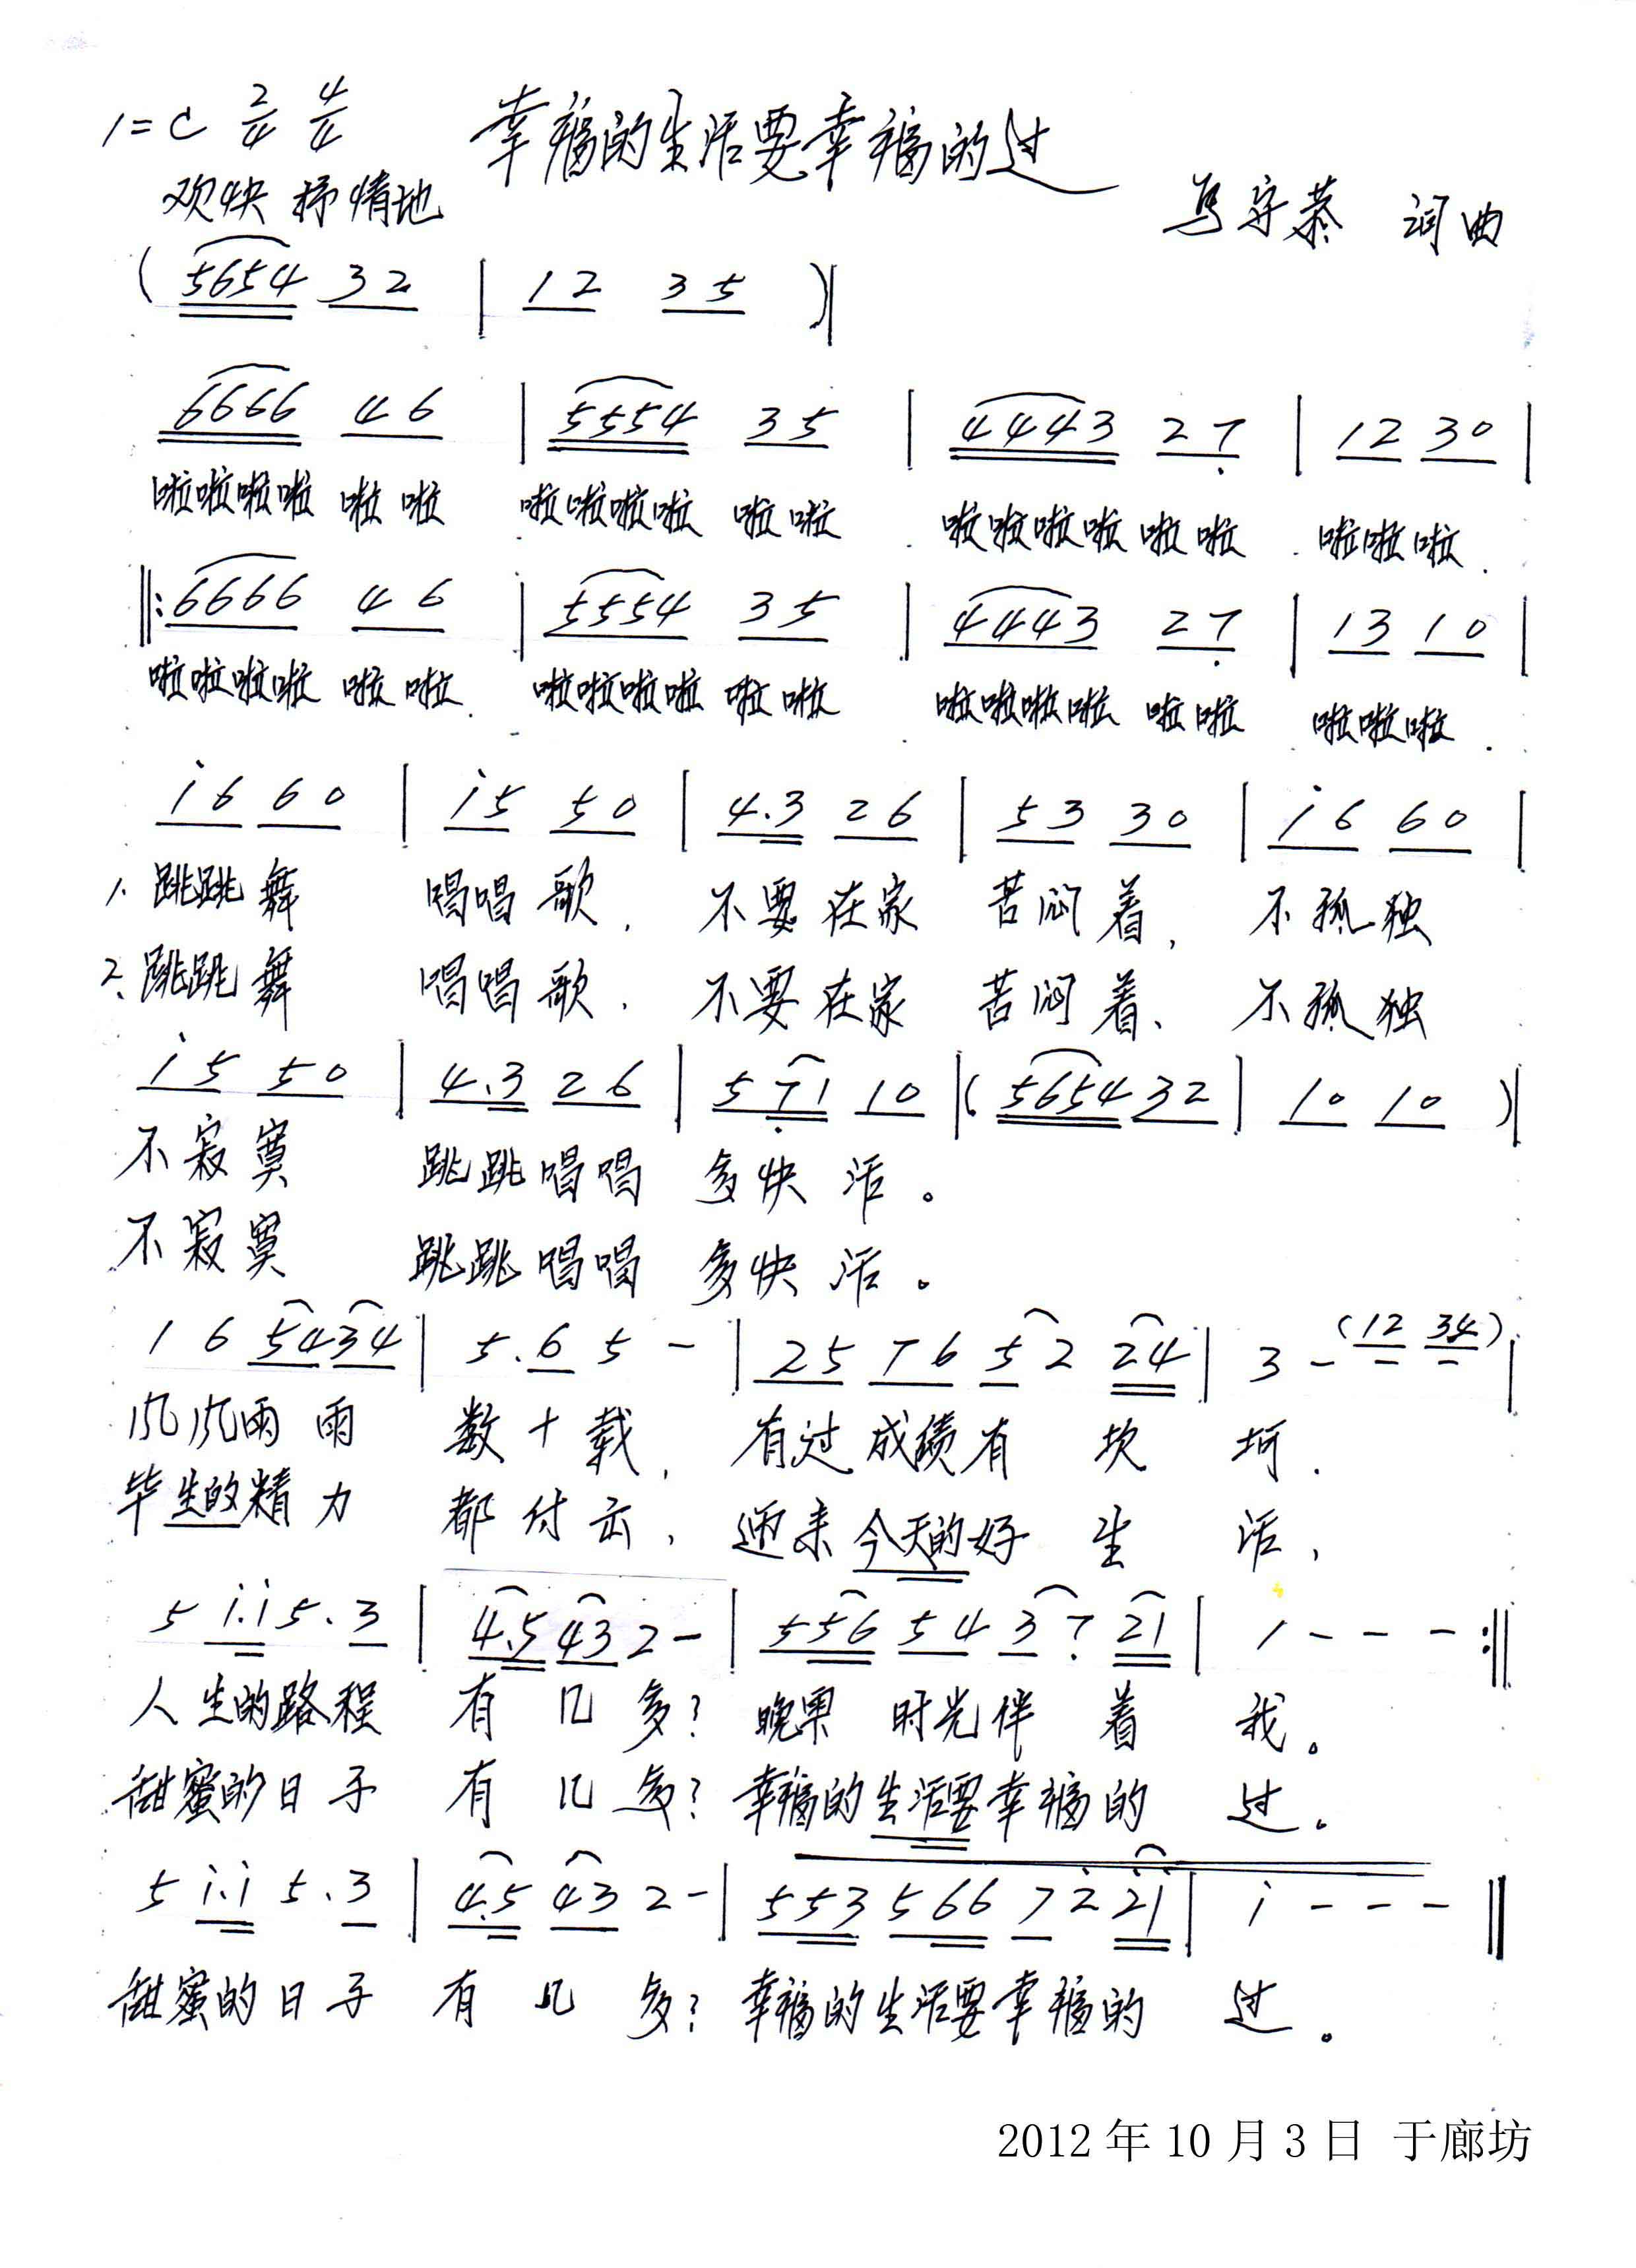 1=C 2/4 4/4 幸福的生活要幸福的过
欢快 抒情地 马守恭 词曲
( 5654 32 | 12 35 )|
6666 46 | 5554 35 | 4443 27̣ | 12 30 |
啦啦啦啦 啦啦 啦啦啦啦 啦啦 啦啦啦啦 啦啦 啦啦啦.
‖: 6666 46 | 5554 35 | 4443 27̣ | 13 10 |
啦啦啦啦 啦啦. 啦啦啦啦 啦啦 啦啦啦啦 啦啦 啦啦啦.
i6 60 | i5 50 | 4.3 26 | 53 30 | i6 60 |
1. 跳跳舞 唱唱歌, 不要在家 苦闷着, 不孤独
2. 跳跳舞 唱唱歌, 不要在家 苦闷着、 不孤独
i5 50 | 4.3 26 | 57̣1 10 |( 5654 32 | 10 10 )|
不寂寞 跳跳唱唱 多快活。
不寂寞 跳跳唱唱 多快活。
1 6 5434 | 5.6 5 - | 25 76 52 24 | 3 - (12 34) |
风风雨雨 数十载, 有过成绩有坎坷.
毕生的精力 都付出, 迎来今天的好生活,
5 i.i 5.3 | 4.5 43 2 - | 556 54 37̣ 21 | 1 - - - :‖
人生的路程 有几多? 晚果 时光伴着我。
甜蜜的日子 有几多? 幸福的生活要幸福的过。
5 i.i 5.3 | 4.5 43 2 - | 553 566 72̇ 2̇i | i - - - ‖
甜蜜的日子 有几多? 幸福的生活要幸福的过。
2012年10月3日 于廊坊